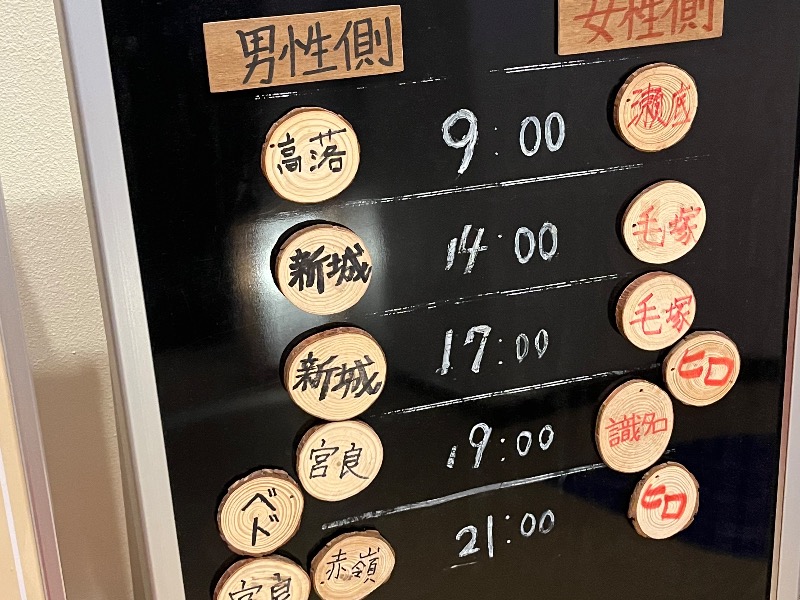 男性側 女性側
高落 9:00 瀬感
新城 14:00 毛塚
新城 17:00 毛塚
ヒロ
宮良 19:00 識名
ベド
赤嶺 21:00 ヒロ
宮良